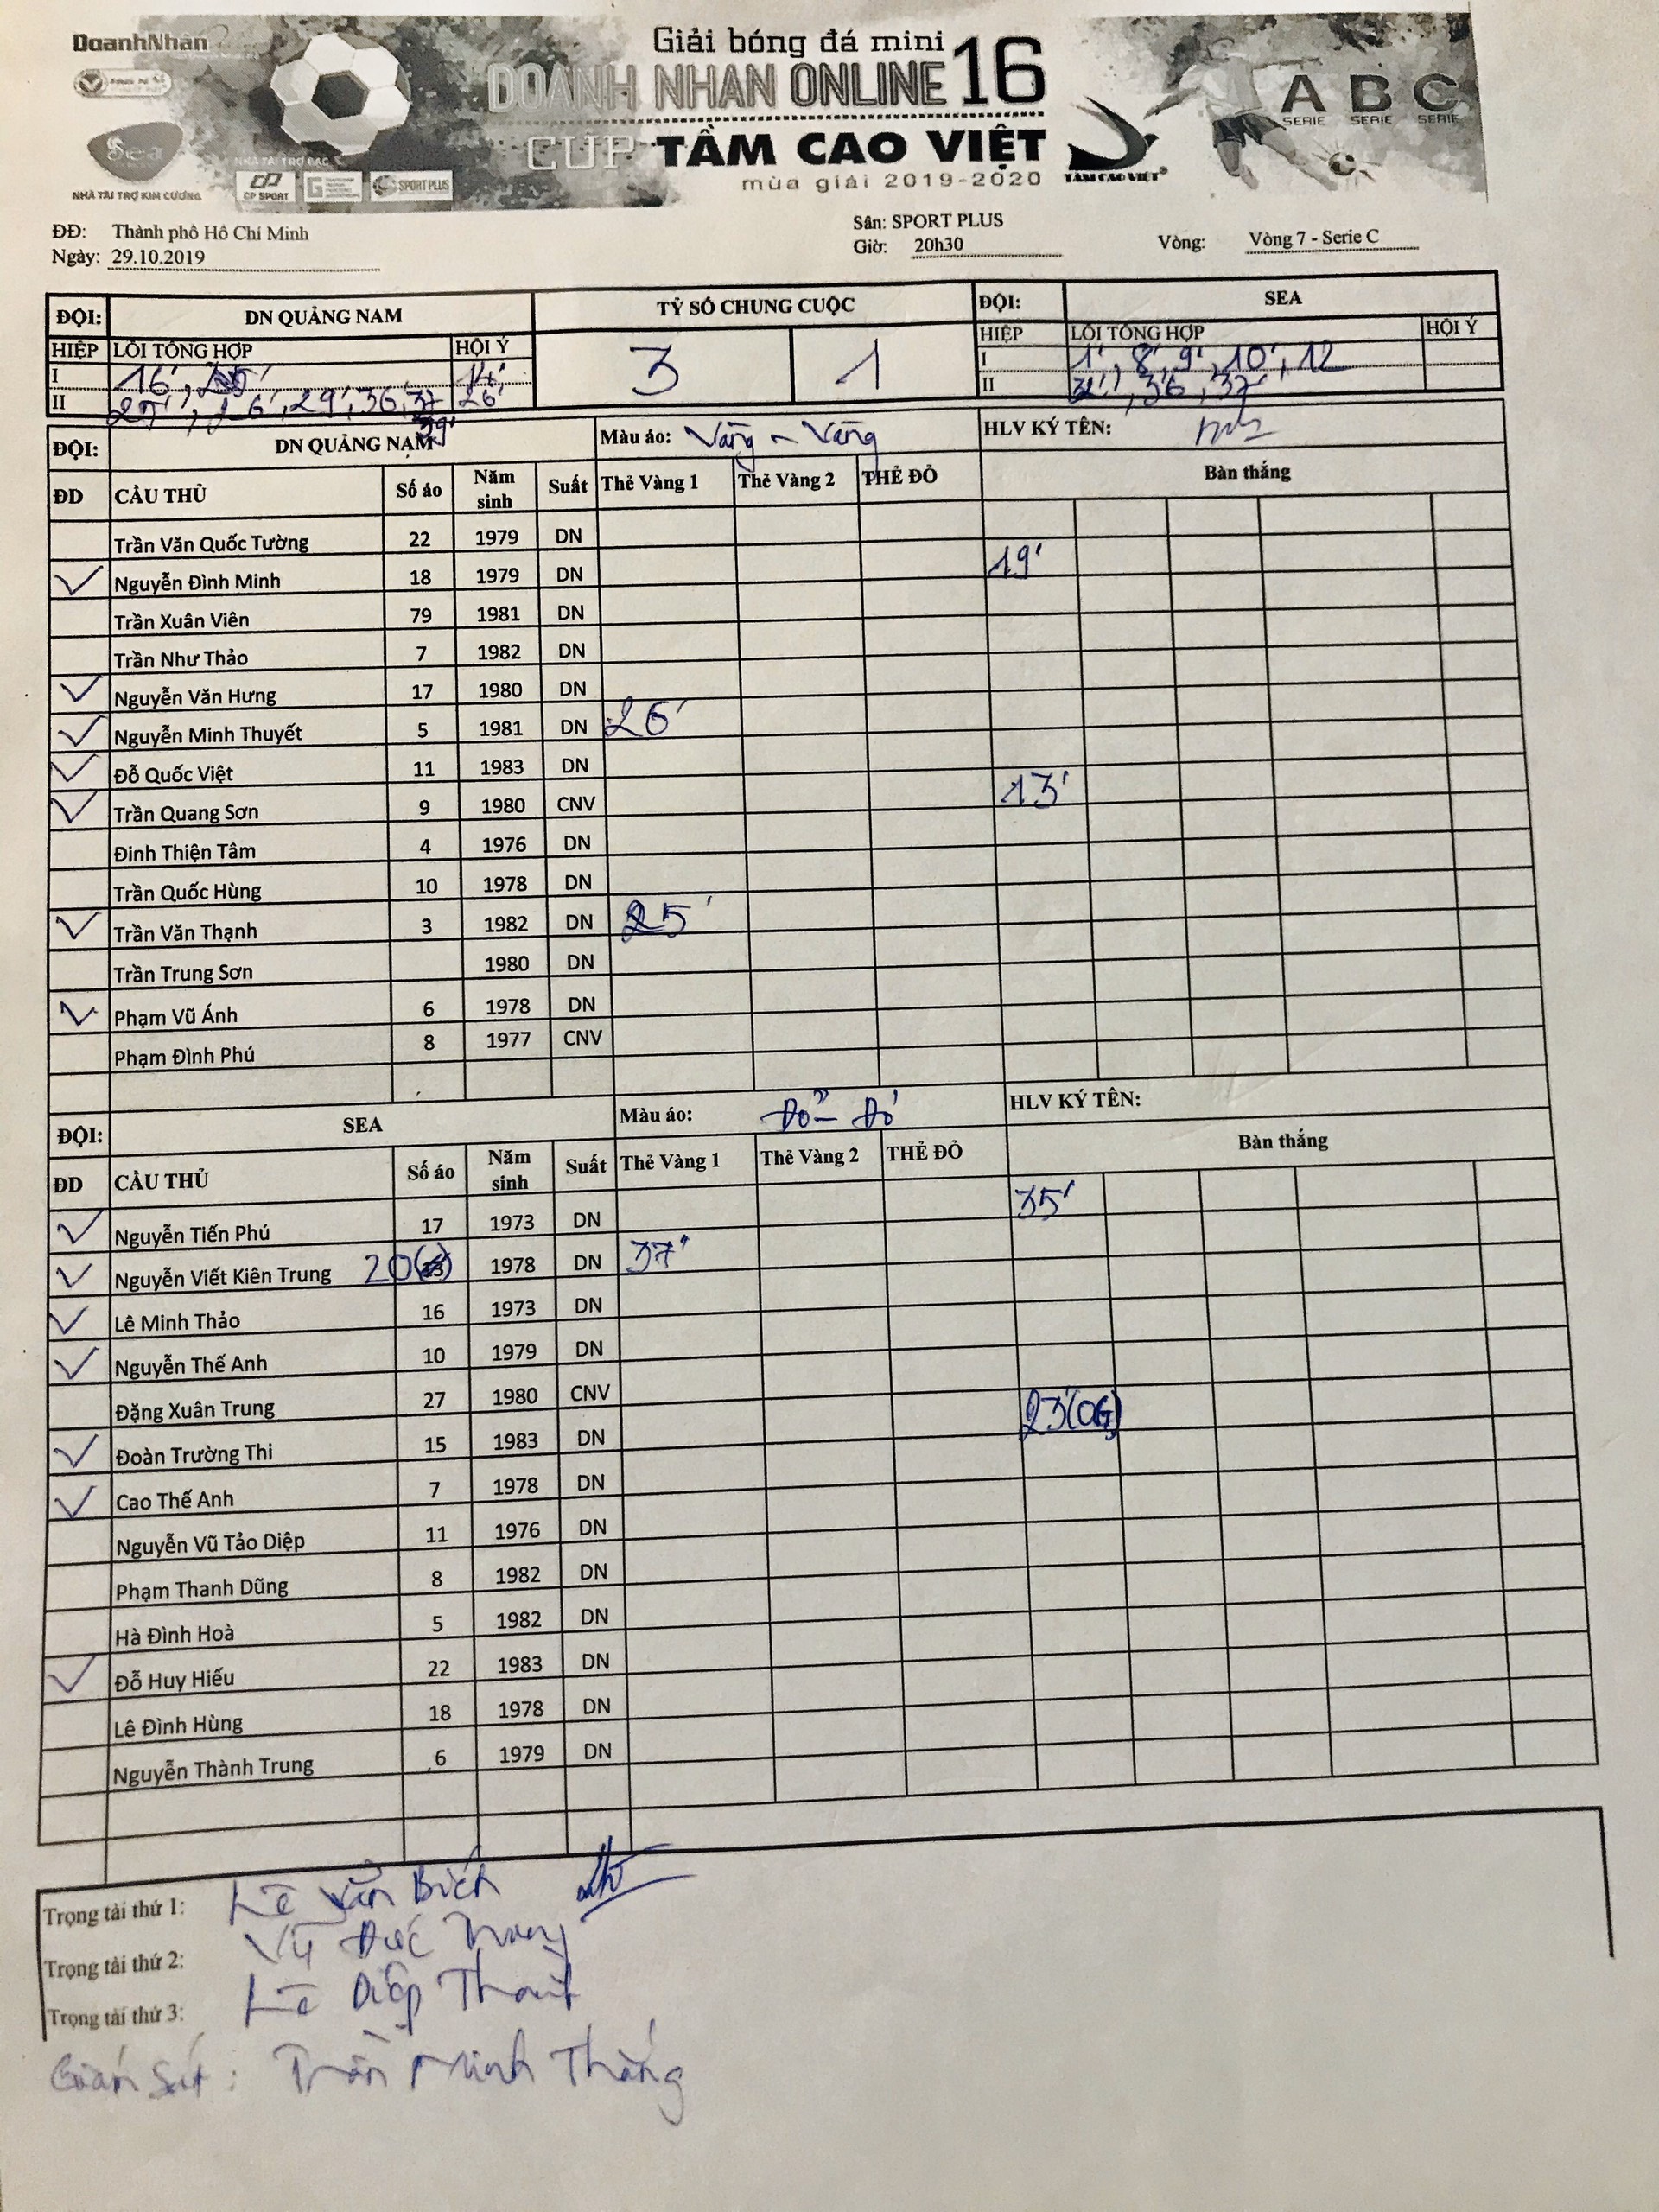 DoanhNhân
Giải bóng đá mini
DOANH NHAN ONLINE 16
CUP TẦM CAO VIỆT
mùa giải 2019-2020
TẦM CAO VIỆT
A B C
SERIE SERIE SERIE
Sea
NHÀ TÀI TRỢ KIM CƯƠNG
NHÀ TÀI TRỢ BẠC
CP SPORT
SPORT PLUS
ĐĐ: Thành phô Hô Chí Minh
Sân: SPORT PLUS
Ngày: 29.10.2019
Giờ: 20h30
Vòng: Vòng 7 - Serie C
ĐỘI: DN QUẢNG NAM TỶ SỐ CHUNG CUỘC ĐỘI: SEA
HIỆP LỖI TỔNG HỢP HỘI Ý 3 1 HIỆP LỖI TỔNG HỢP HỘI Ý
I 16', 14' I 1', 8', 9', 10', 12
II 26', 29', 36, 37 26' II 32', 36, 37'
39'
ĐỘI: DN QUẢNG NAM Màu áo: Vàng - Vàng HLV KÝ TÊN:
ĐD CẦU THỦ Số áo Năm sinh Suất Thẻ Vàng 1 Thẻ Vàng 2 THẺ ĐỎ Bàn thắng
Trần Văn Quốc Tường 22 1979 DN
Nguyễn Đình Minh 18 1979 DN 19'
Trần Xuân Viên 79 1981 DN
Trần Như Thảo 7 1982 DN
Nguyễn Văn Hưng 17 1980 DN
Nguyễn Minh Thuyết 5 1981 DN 26'
Đỗ Quốc Việt 11 1983 DN
Trần Quang Sơn 9 1980 CNV 13'
Đinh Thiện Tâm 4 1976 DN
Trần Quốc Hùng 10 1978 DN
Trần Văn Thạnh 3 1982 DN 25'
Trần Trung Sơn 1980 DN
Phạm Vũ Ánh 6 1978 DN
Phạm Đình Phú 8 1977 CNV
ĐỘI: SEA Màu áo: Đỏ - Đỏ HLV KÝ TÊN:
ĐD CẦU THỦ Số áo Năm sinh Suất Thẻ Vàng 1 Thẻ Vàng 2 THẺ ĐỎ Bàn thắng
Nguyễn Tiến Phú 17 1973 DN 35'
Nguyễn Viết Kiên Trung 20 1978 DN 37'
Lê Minh Thảo 16 1973 DN
Nguyễn Thế Anh 10 1979 DN
Đặng Xuân Trung 27 1980 CNV
Đoàn Trường Thi 15 1983 DN 23'(OG)
Cao Thế Anh 7 1978 DN
Nguyễn Vũ Tảo Diệp 11 1976 DN
Phạm Thanh Dũng 8 1982 DN
Hà Đình Hoà 5 1982 DN
Đỗ Huy Hiếu 22 1983 DN
Lê Đình Hùng 18 1978 DN
Nguyễn Thành Trung 6 1979 DN
Trọng tài thứ 1: Lê Văn Bích
Trọng tài thứ 2: Vũ Đức
Trọng tài thứ 3: Lê Diệp Thanh
Giám Sát: Trần Minh Thắng